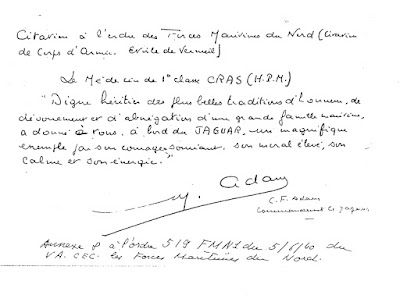 Citation à l'ordre des Forces Maritimes du Nord (Citation
de Corps d'Armée. Etoile de Vermeil)
Le Médecin de 1° classe CRAS (H.P.M.)
"Digne héritier des plus belles traditions d'honneur, de
dévouement et d'abnégation d'une grande famille maritime,
a donné à tous, à bord du JAGUAR, un magnifique
exemple par son courage souriant, son moral élevé, son
calme et son énergie."
Adam
C.F. Adam
Commandant le Jaguar
Annexe 8 à l'ordre 519 FMN1 du 5/6/40 du
V.A. CEC. les Forces Maritimes du Nord.